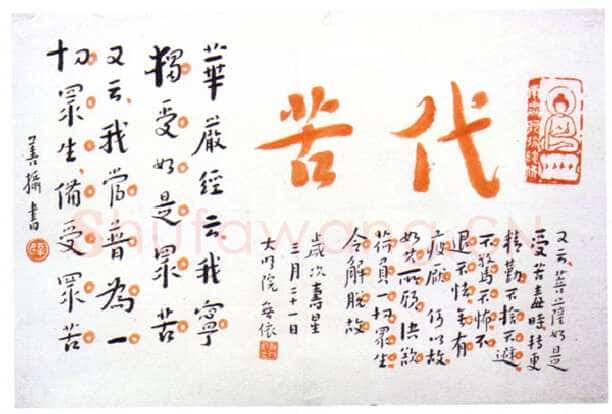 代苦
華嚴經云我寧
獨受如是眾苦
又云我當普為一
切眾生備受眾苦
善攝書
又云菩薩如是
受苦毒時轉更
精勤不捨不避
不驚不怖不
退不怯無有
疲厭何以故
如其所願決欲
荷負一切眾生
令解脫故
歲次壽星
三月二十一日
大明院
Shufawang.CN